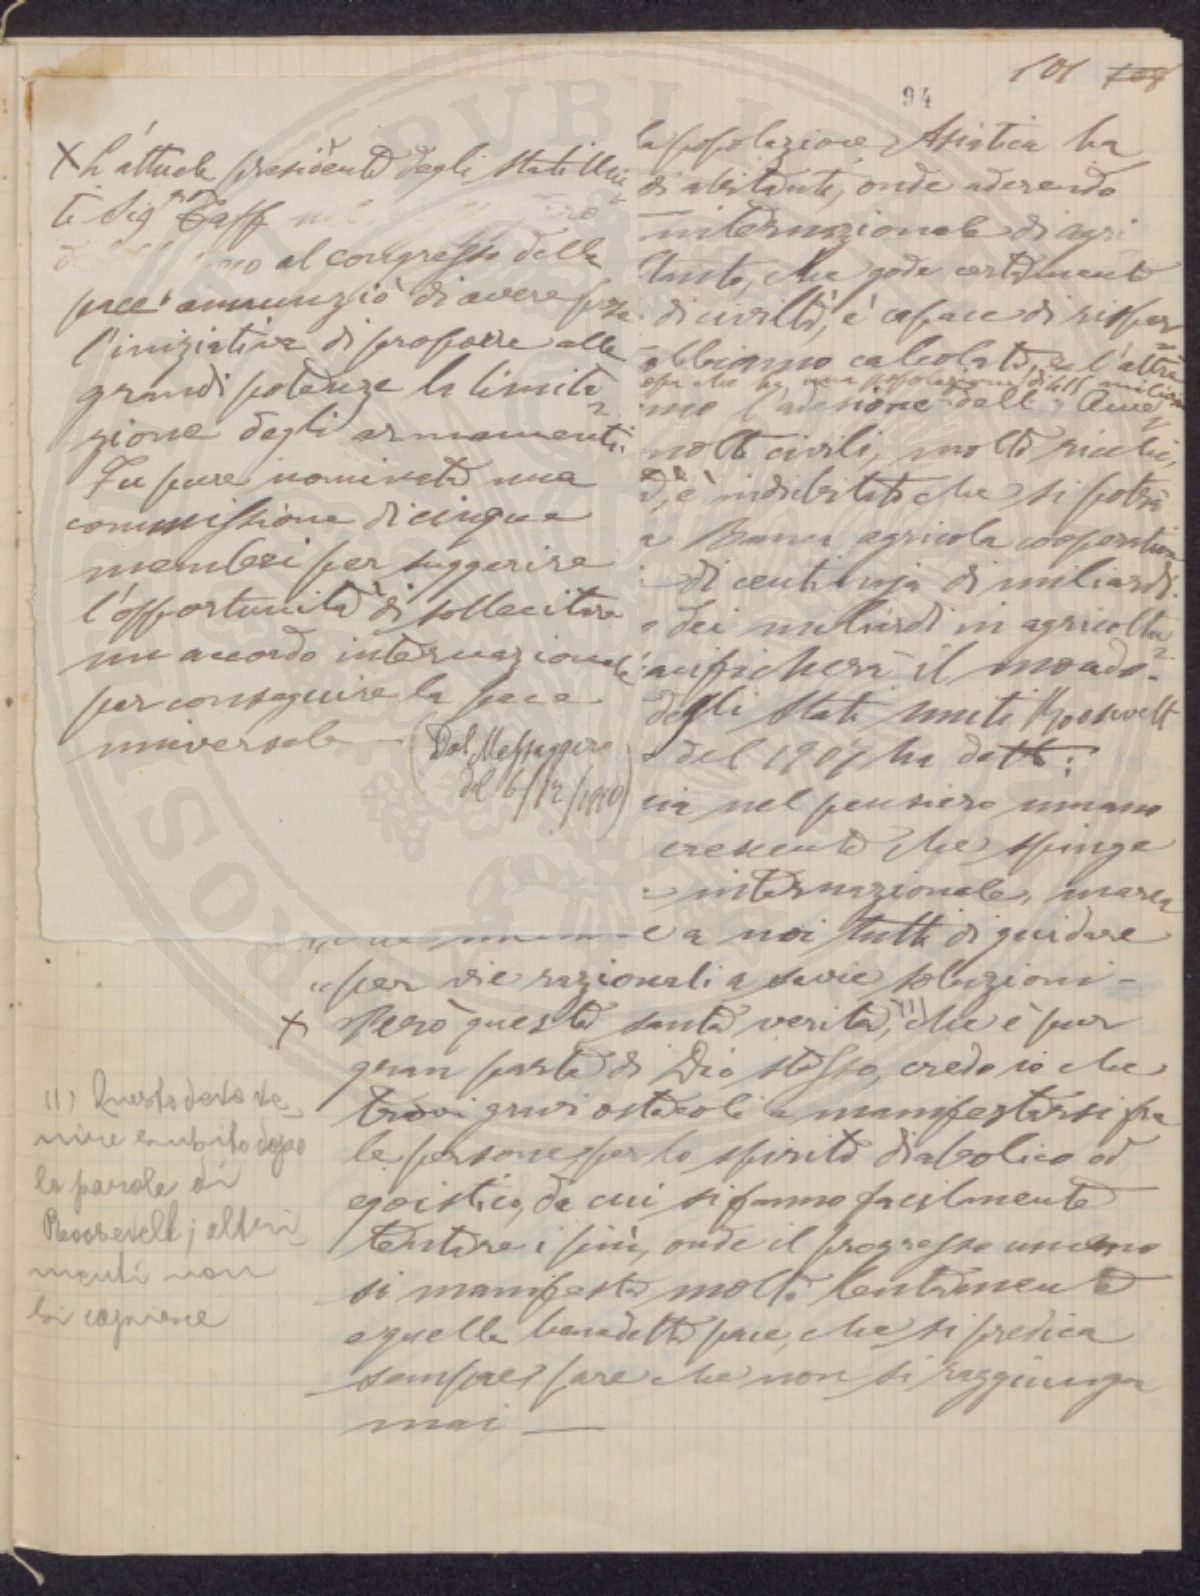 101 104
94
X L'attuale presidente degli Stati Uni
ti Sig.r Taff
al congresso della
pace annunziò di avere presa
l'iniziativa di proporre alle
grandi potenze la limita
zione degli armamenti.
Fu pure nominata una
commissione di cinque
membri per suggerire
l'opportunità di sollecitare
un accordo internazionale
per conseguire la pace
universale —
(Dal Messaggero
del 6/12/1910)
la popolazione Asiatica ha
di abitanti, onde aderendo
internazionale di agri
che gode certamente
di civiltà, è capace di rispar
abbiamo calcolato, e l'altra
che ha una popolazione di milioni
l'adesione dell' Ame
molto civili, molto ricchi,
è indubitato che si potrà
a Banca agricola cooperativa
di centinaja di miliardi.
dei miliardi in agricoltu
ificherà il mondo.
degli Stati uniti Roosevelt
del 1907 ha detto:
nel pensiero umano
crescente che spinge
internazionale, marea
e a noi tutti di guidare
" per vie razionali a savie soluzioni -
X Però questa santa verità, (1) che è pur
gran parte di Dio stesso, credo io che
trovi gravi ostacoli a manifestarsi fra
le persone per lo spirito diabolico od
egoistico, da cui si fanno facilmente
tentare i più, onde il progresso umano
si manifesta molto lentamente
e quella benedetta pace, che si predica
sempre, pare che non si raggiunga
mai —
(1) Questo deve ve
nire subito dopo
le parole di
Roosevelt; altri
menti non
si capisce